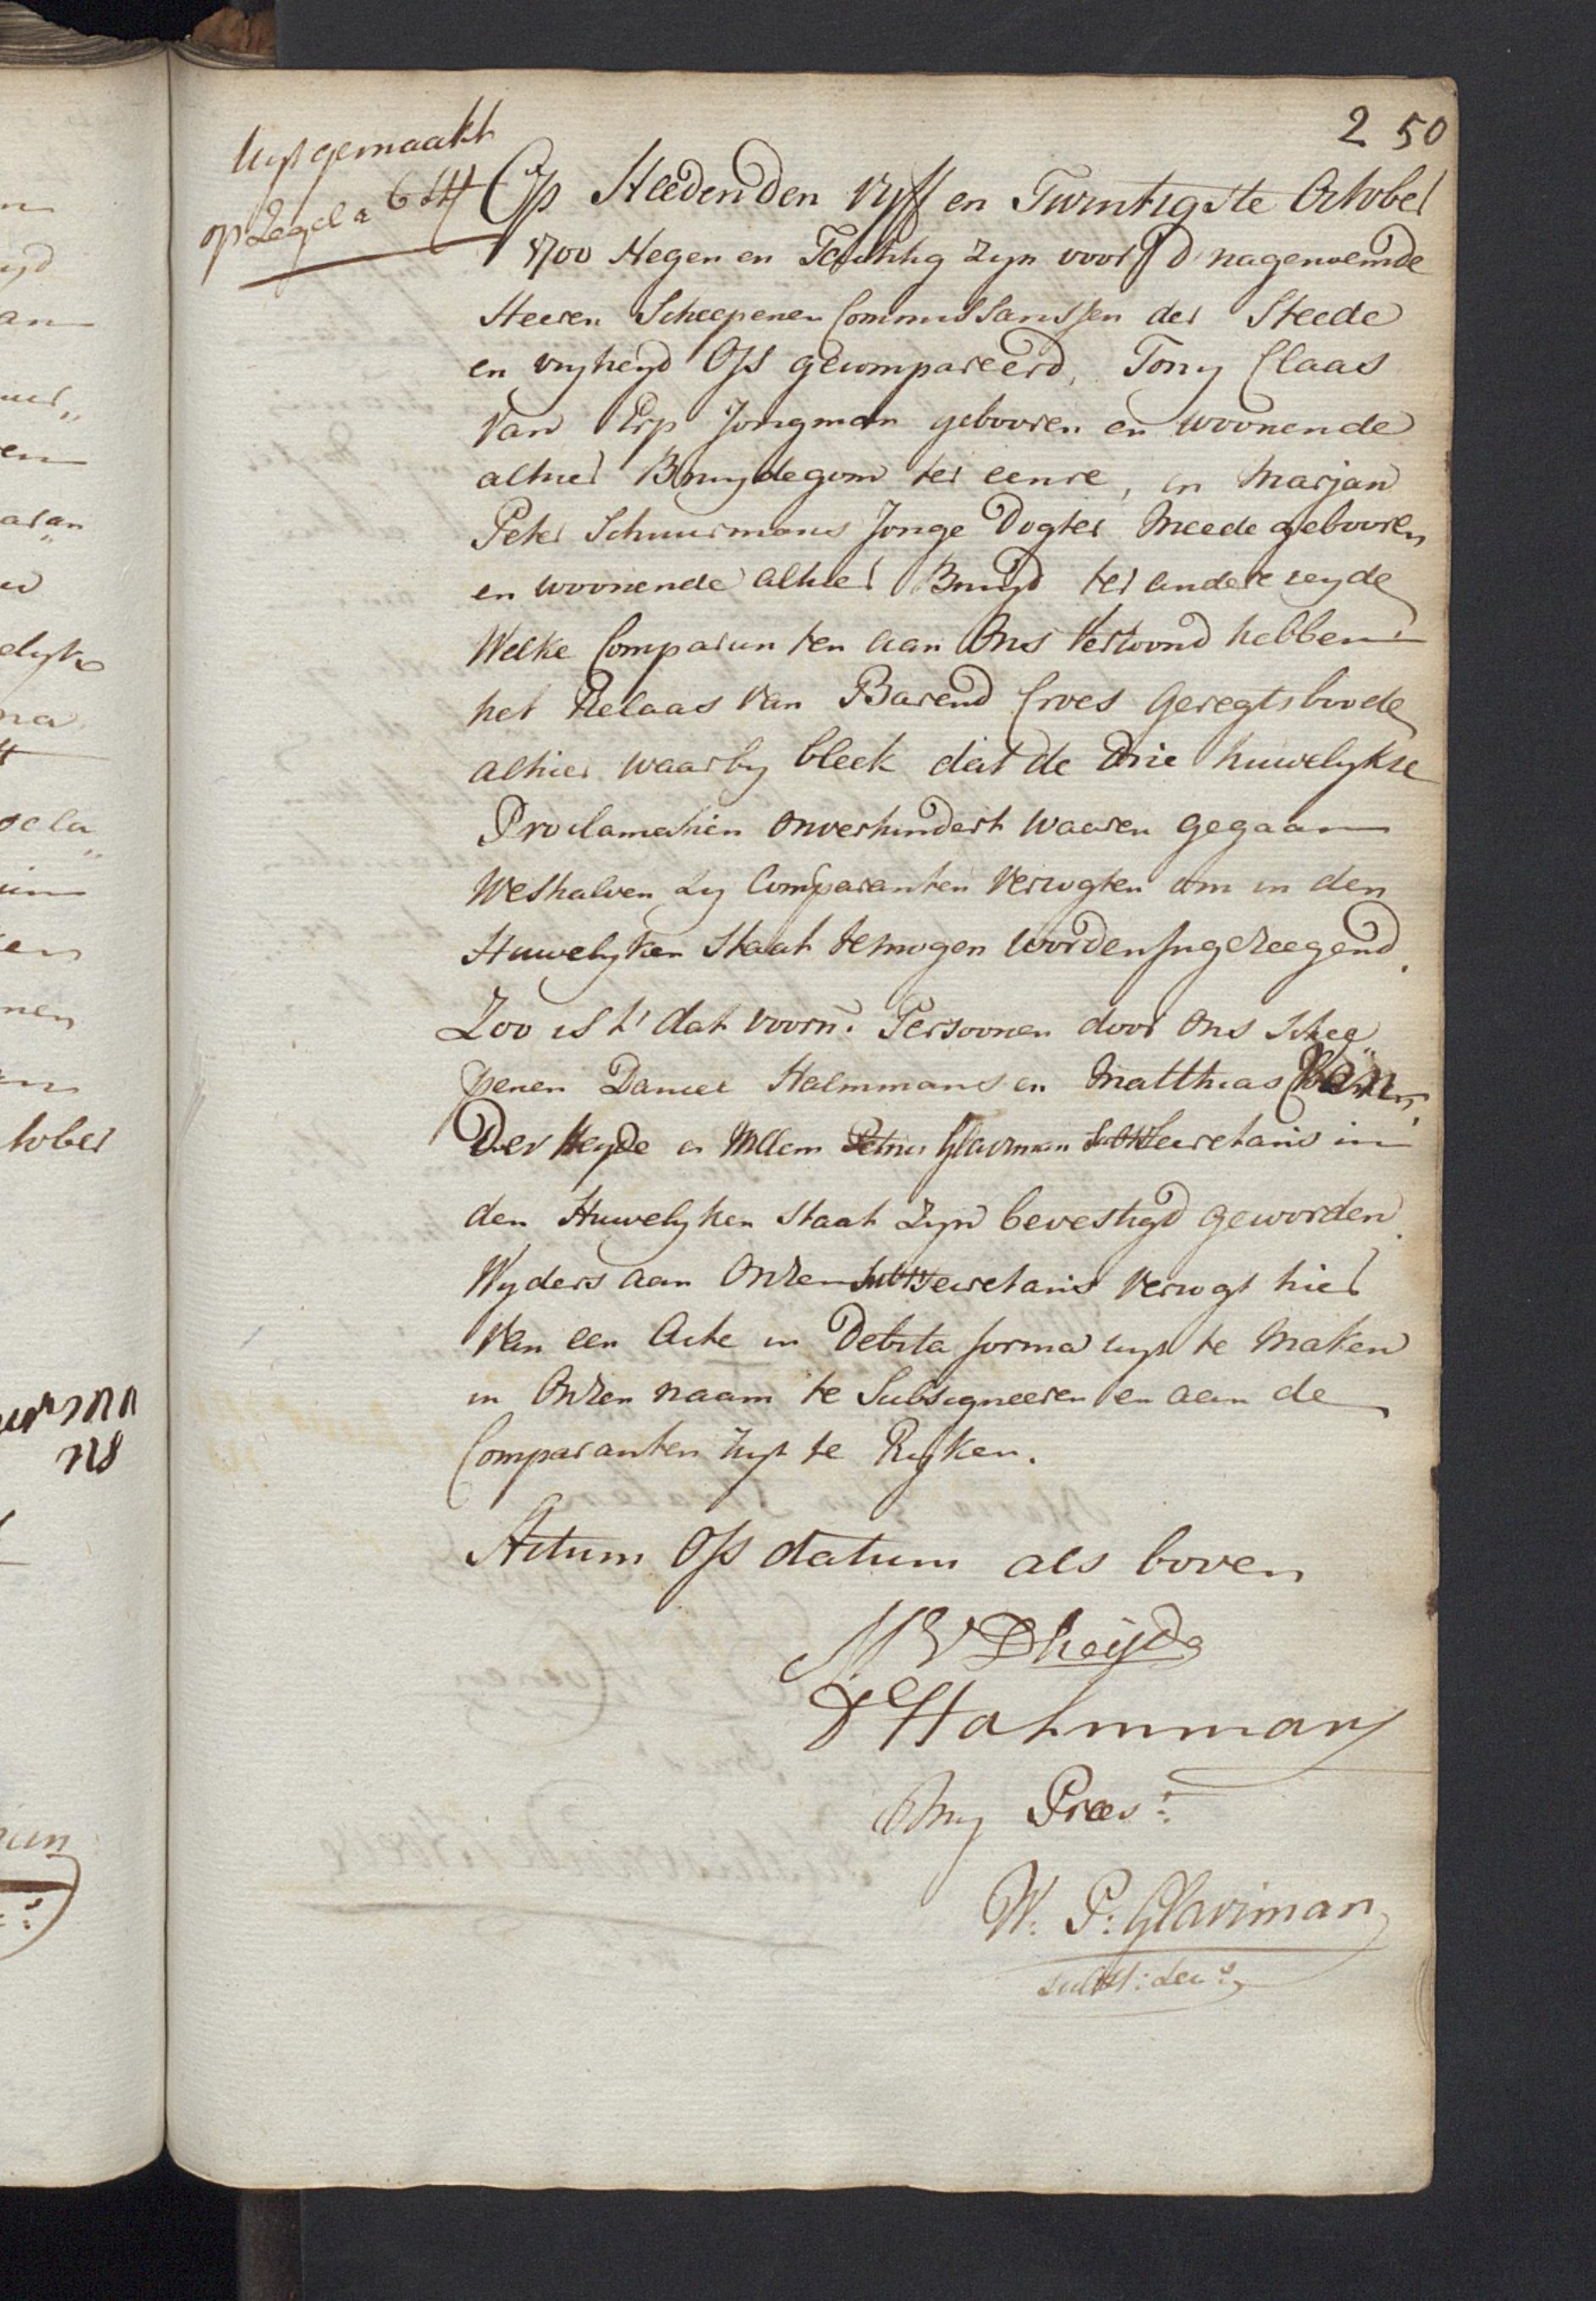 250
uytgemaakt
op Zegel a 6 st
Op Heeden den vyff en Twintigste October
1700 Negen en Tachtig zyn voor d' nagenoemde
Heeren Scheepenen Commissarissen der Steede
en vryheyd Oss gecompareerd, Tony Claas
Van Erp Jongman gebooren en woonende
alhier Bruydegom ter eenre, en Marjan
Peter Schuurmans Jonge Dogter Meede gebooren
en woonende alhier Bruyd ter andere zeyde
Welke Comparanten aan Ons Vertoond hebben
het Relaas Van Barend Croes Geregtsboode
alhier waarby bleek dat de drie huwelykse
Proclamatien Onverhindert waaren gegaan
Weshalven Zy Comparanten Verzogten om in den
Huwelyken Staat te mogen worden Ingezeegend.
Zoo is t' dat voorn: Persoonen door Ons Schee„
penen Daniel Halmmans en Matthias Van
Der Heyde en Willem Petrus Glaviman Subst Secretaris in
den Huwelyken Staat zyn bevestigd geworden.
Wyders aan Onzen Subst Secretaris Verzogt hier
Van een Acte in Debita forma uyt te Maken
in Onzen naam te Subsigneeren en aan de
Comparanten uyt te Ryken.
Actum Oss datum als boven
M V D heijde
D Halmmans
Bij Praes:
W: P: Glaviman
subst: Secrs